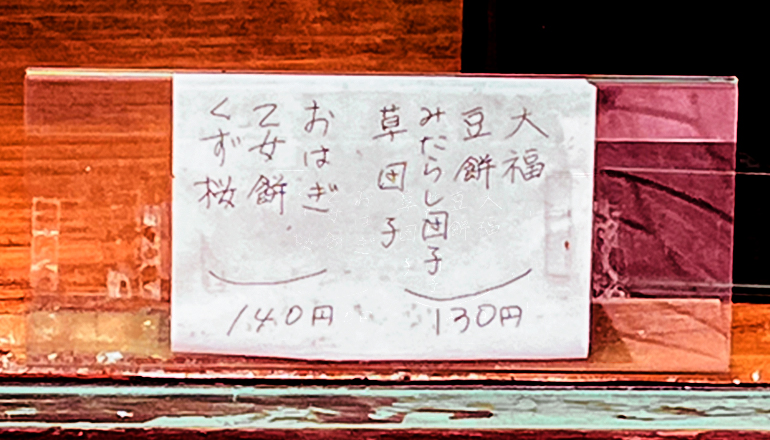 大福
豆餅
みたらし団子
草団子
130円
おはぎ
乙女餅
くず桜
140円